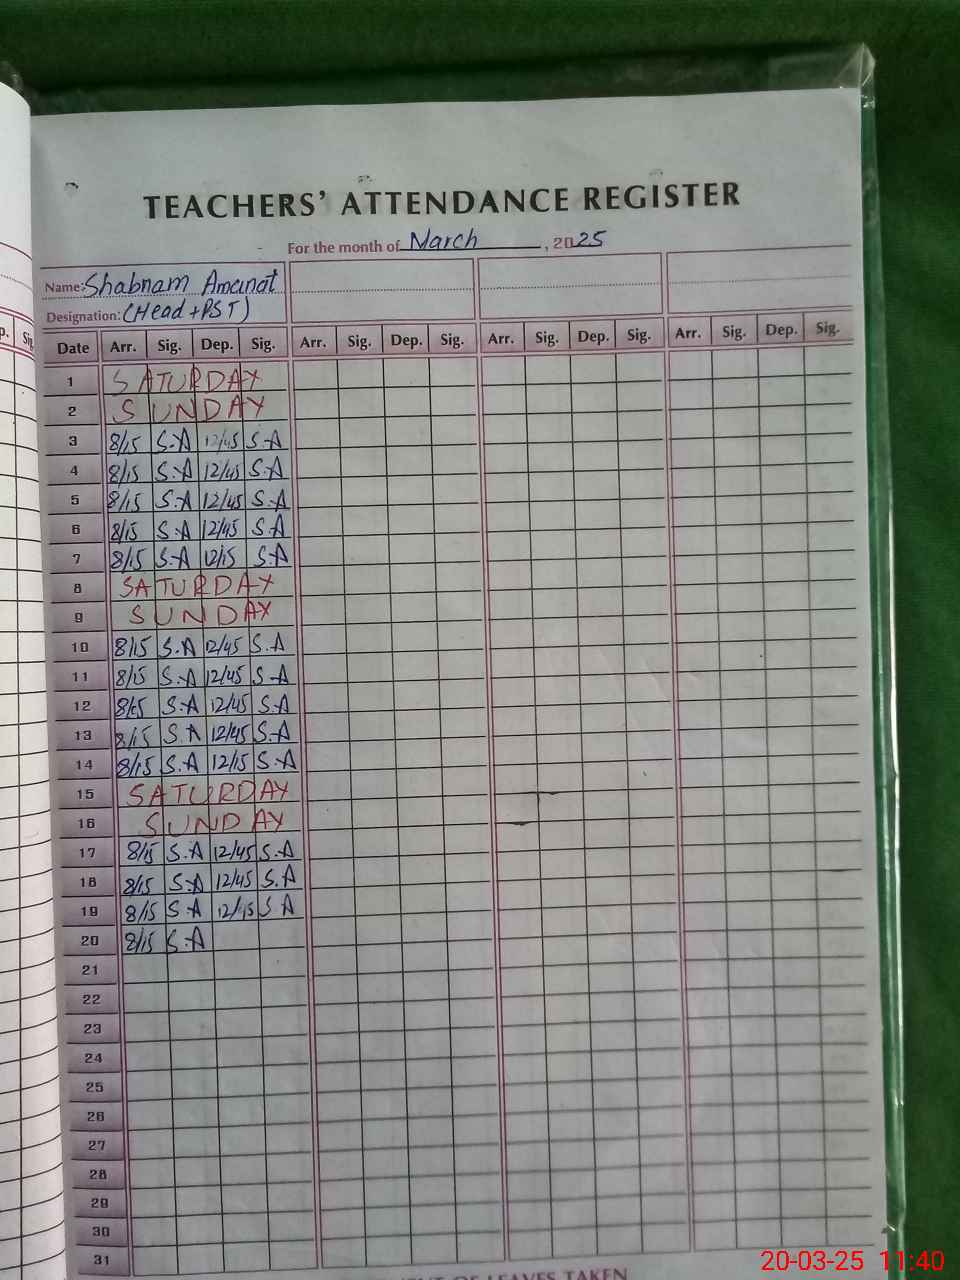 TEACHERS' ATTENDANCE REGISTER
For the month of March, 2025
Name: Shabnam Amanat
Designation: (Head + PST)
Date Arr. Sig. Dep. Sig. Arr. Sig. Dep. Sig. Arr. Sig. Dep. Sig. Arr. Sig. Dep. Sig.
1 SATURDAY
2 SUNDAY
3 8/15 S.A 12/45 S.A
4 8/15 S.A 12/45 S.A
5 8/15 S.A 12/45 S.A
6 8/15 S.A 12/45 S.A
7 8/15 S.A 12/15 S.A
8 SATURDAY
9 SUNDAY
10 8/15 S.A 12/45 S.A
11 8/15 S.A 12/45 S.A
12 8/15 S.A 12/45 S.A
13 8/15 S.A 12/45 S.A
14 8/15 S.A 12/15 S.A
15 SATURDAY
16 SUNDAY
17 8/15 S.A 12/45 S.A
18 8/15 S.A 12/45 S.A
19 8/15 S.A 12/45 S.A
20 8/15 S.A
21
22
23
24
25
26
27
28
29
30
31
OF LEAVES TAKEN
20-03-25 11:40